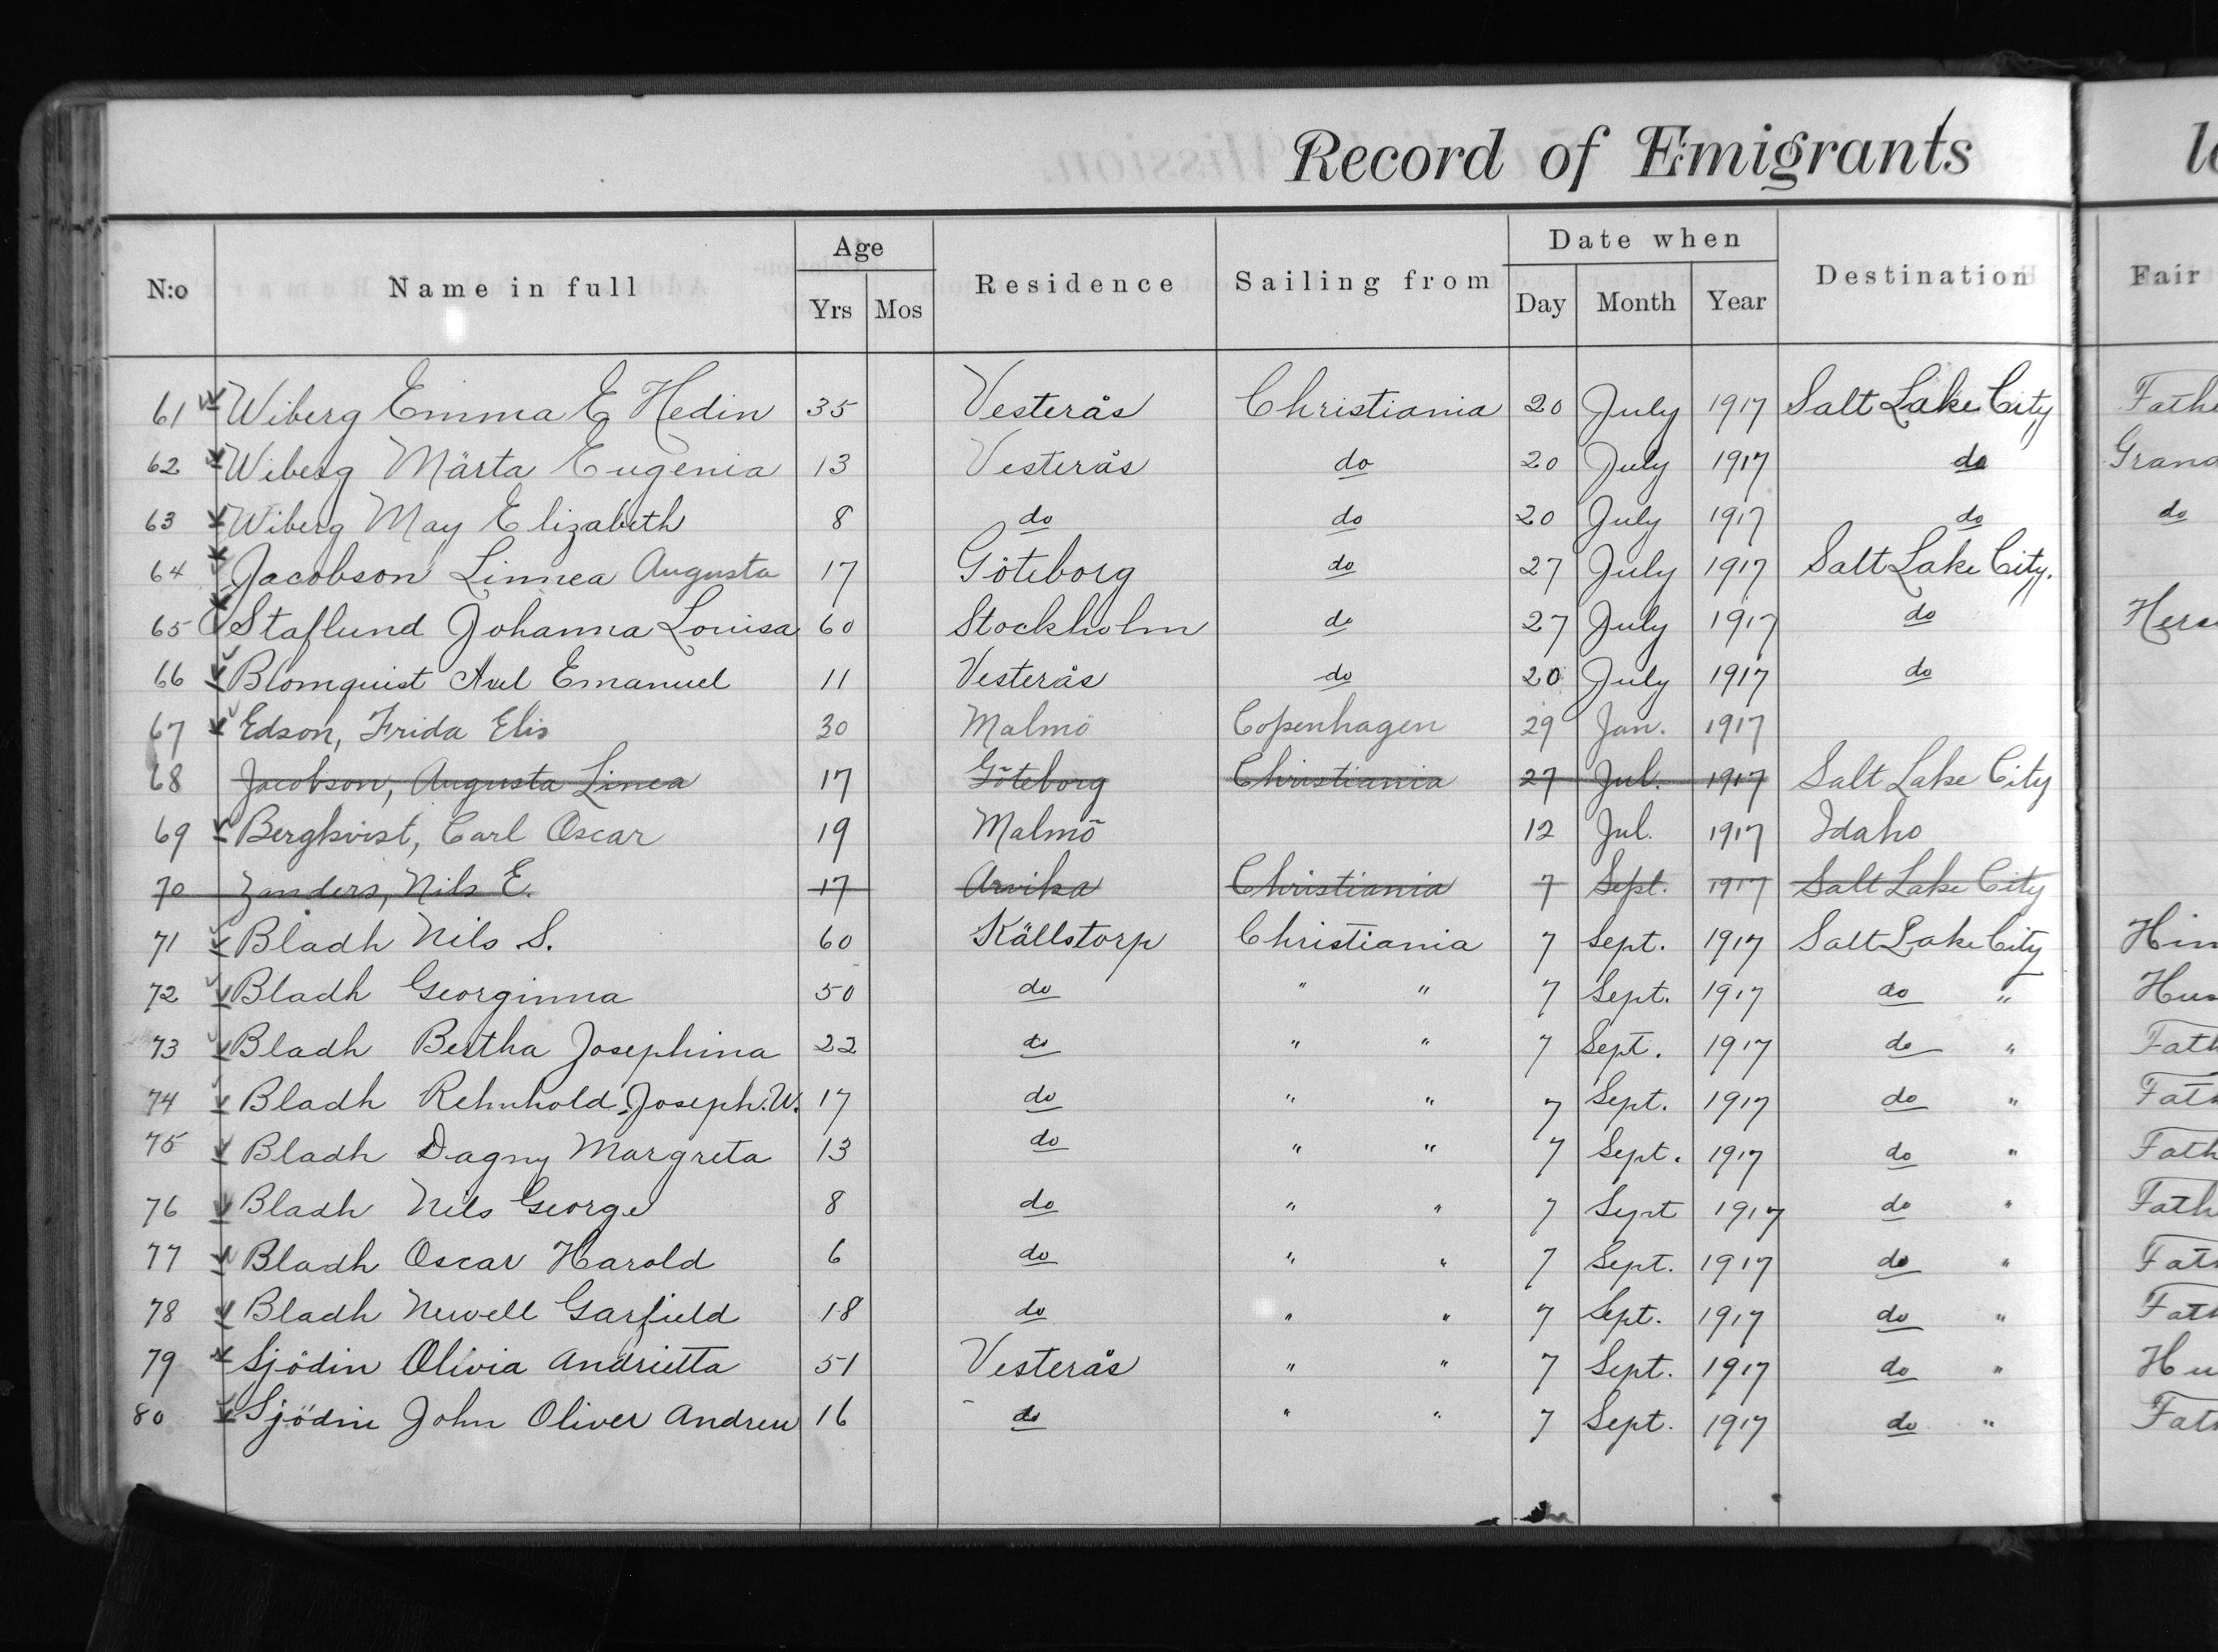 Record of Emigrants
N:o Name in full Age Yrs Mos Residence Sailing from Date when Day Month Year Destination Fair
61 Wiberg Emma E Hedin 35 Vesterås Christiania 20 July 1917 Salt Lake City Fathe
62 Wiberg Märta Eugenia 13 Vesterås do 20 July 1917 do Grand
63 Wiberg May Elizabeth 8 do do 20 July 1917 do do
64 Jacobson Linnea Augusta 17 Göteborg do 27 July 1917 Salt Lake City.
65 Staflund Johanna Louisa 60 Stockholm do 27 July 1917 do Hers
66 Blomquist Axel Emanuel 11 Vesterås do 20 July 1917 do
67 Edson, Frida Elis 30 Malmö Copenhagen 29 Jan. 1917
68 Jacobson, Augusta Linea 17 Göteborg Christiania 27 Jul. 1917 Salt Lake City
69 Bergkvist, Carl Oscar 19 Malmö 12 Jul. 1917 Idaho
70 Zanders, Nils E. 17 Arvika Christiania 7 Sept. 1917 Salt Lake City
71 Bladh Nils S. 60 Källstorp Christiania 7 Sept. 1917 Salt Lake City Him
72 Bladh Georginna 50 do " " 7 Sept. 1917 do " Hus
73 Bladh Bertha Josephina 22 do " " 7 Sept. 1917 do " Fath
74 Bladh Rehnhold Joseph. W. 17 do " " 7 Sept. 1917 do " Fath
75 Bladh Dagny Margreta 13 do " " 7 Sept. 1917 do " Fath
76 Bladh Nils George 8 do " " 7 Sept 1917 do " Fath
77 Bladh Oscar Harold 6 do " " 7 Sept. 1917 do " Fath
78 Bladh Newell Garfield 18 do " " 7 Sept. 1917 do " Fath
79 Sjödin Olivia Andrietta 51 Vesterås " " 7 Sept. 1917 do " Hu
80 Sjödin John Oliver Andrew 16 do " " 7 Sept. 1917 do " Fath